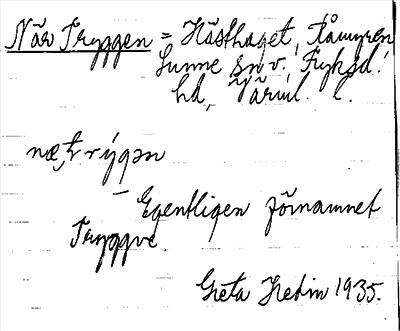 När Tryggen = Hästhaget, Råmyren
Sunne sn v. Fryksd.
hd, Värml. l.
næ, trýgən
Egentligen förnamnet
Tryggve.
Greta Hedin 1935.